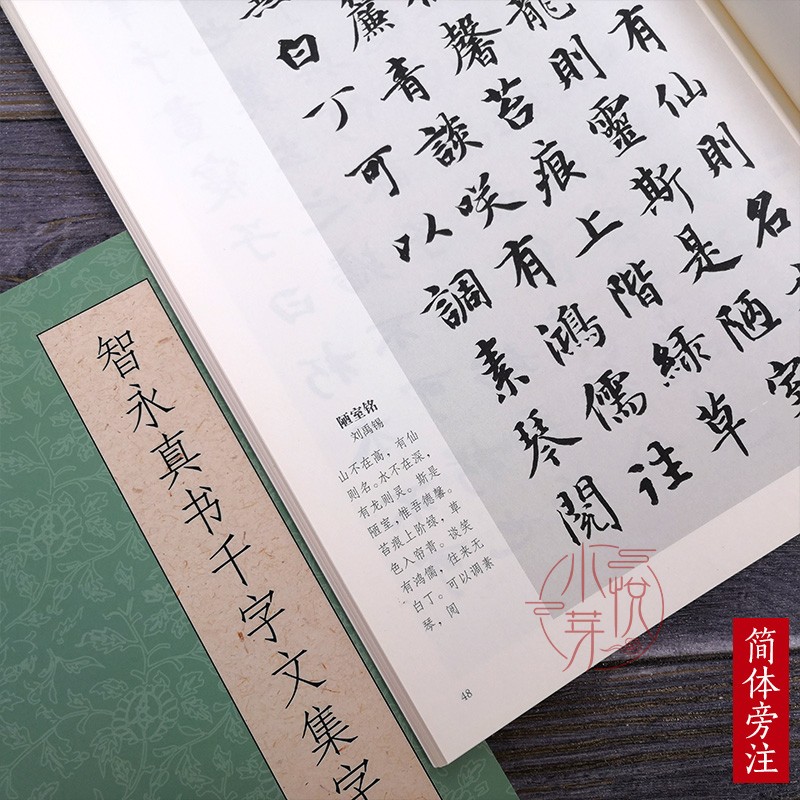 有仙則名
龍則靈斯是陋室
馨苔痕上階綠草
簾青談咲有鴻儒往
白丁可以調素琴閱
陋室铭
刘禹锡
山不在高，有仙
则名。水不在深，
有龙则灵。斯是
陋室，惟吾德馨。
苔痕上阶绿，草
色入帘青。谈笑
有鸿儒，往来无
白丁。可以调素
琴，阅
48
智永真书千字文集字
小悦芽
简体旁注